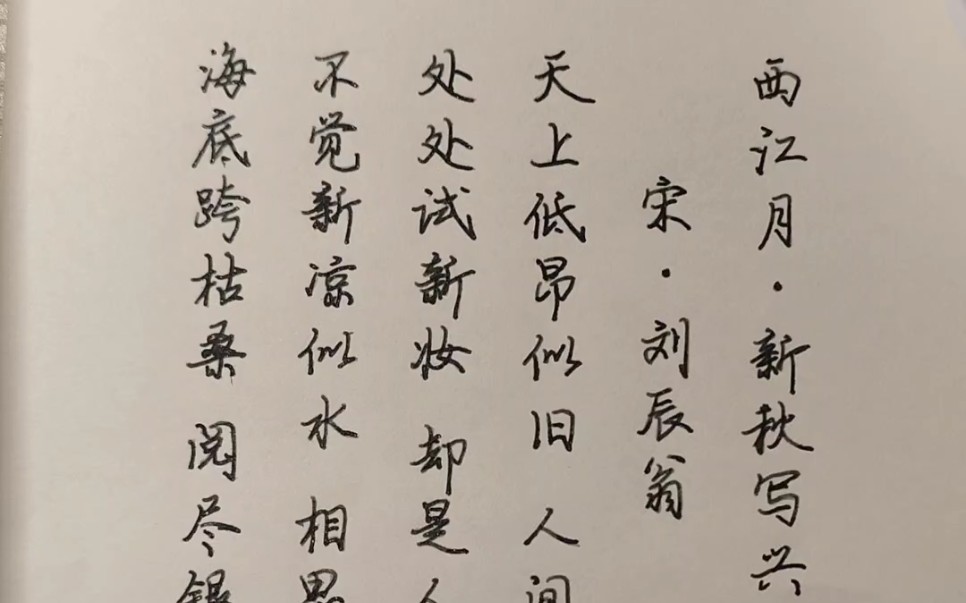 西江月·新秋写兴
宋·刘辰翁
天上低昂似旧 人间
处处试新妆 却是人
不觉新凉似水 相思
海底跨枯桑 阅尽银